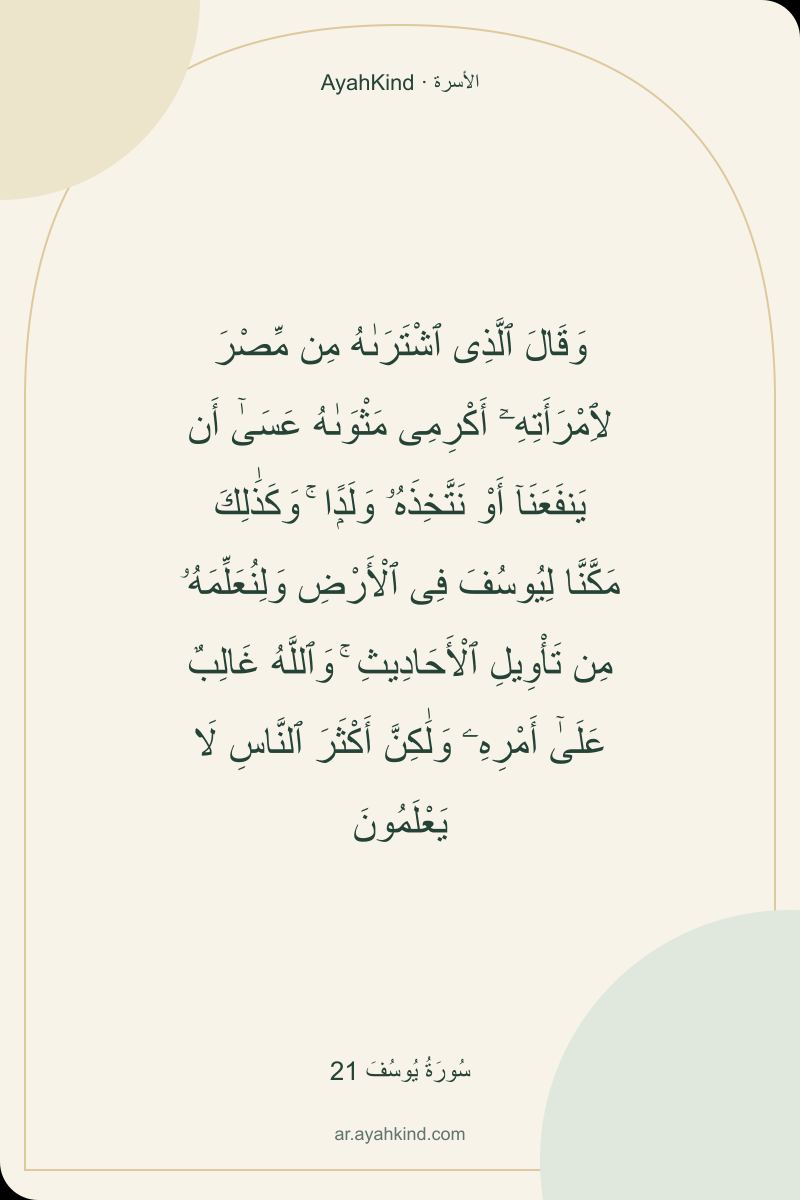 AyahKind · الأسرة
وَقَالَ ٱلَّذِى ٱشْتَرَىٰهُ مِن مِّصْرَ
لِٱمْرَأَتِهِۦٓ أَكْرِمِى مَثْوَىٰهُ عَسَىٰٓ أَن
يَنفَعَنَآ أَوْ نَتَّخِذَهُۥ وَلَدًۭا ۚ وَكَذَٰلِكَ
مَكَّنَّا لِيُوسُفَ فِى ٱلْأَرْضِ وَلِنُعَلِّمَهُۥ
مِن تَأْوِيلِ ٱلْأَحَادِيثِ ۚ وَٱللَّهُ غَالِبٌ
عَلَىٰٓ أَمْرِهِۦ وَلَٰكِنَّ أَكْثَرَ ٱلنَّاسِ لَا
يَعْلَمُونَ
سُورَةُ يُوسُفَ 21
ar.ayahkind.com